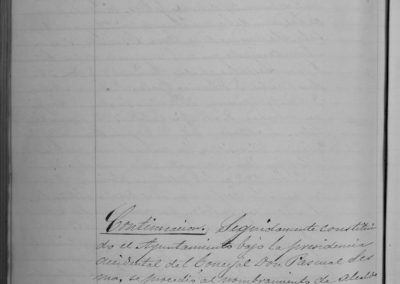 Continuacion: Seguidamente constitui
do el Ayuntamiento bajo la presidencia
accidental del Concejal Don Pascual Ses
ma, se procedió al nombramiento de Alcalde